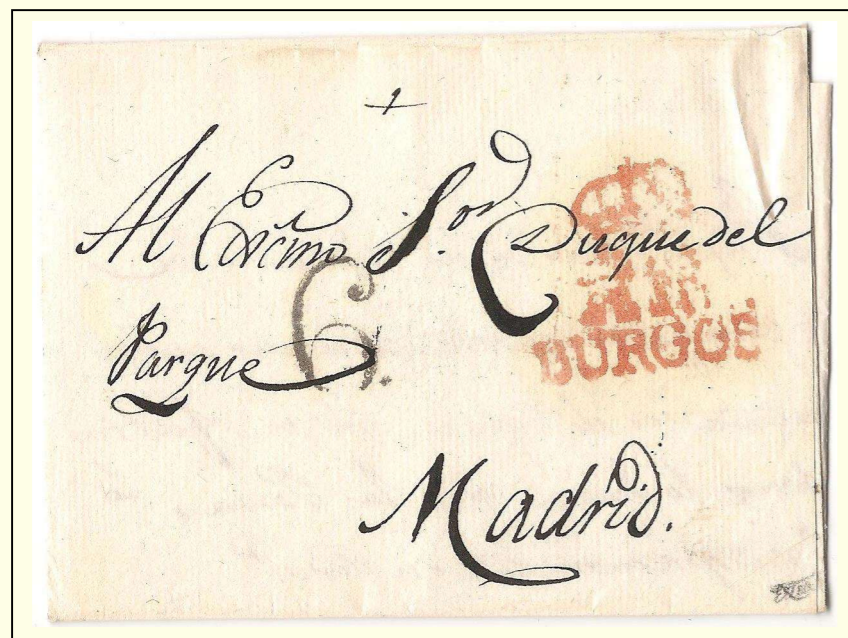 +
Al Excmo S.or Duque del
Parque
6.
BURGOS
Madrid.